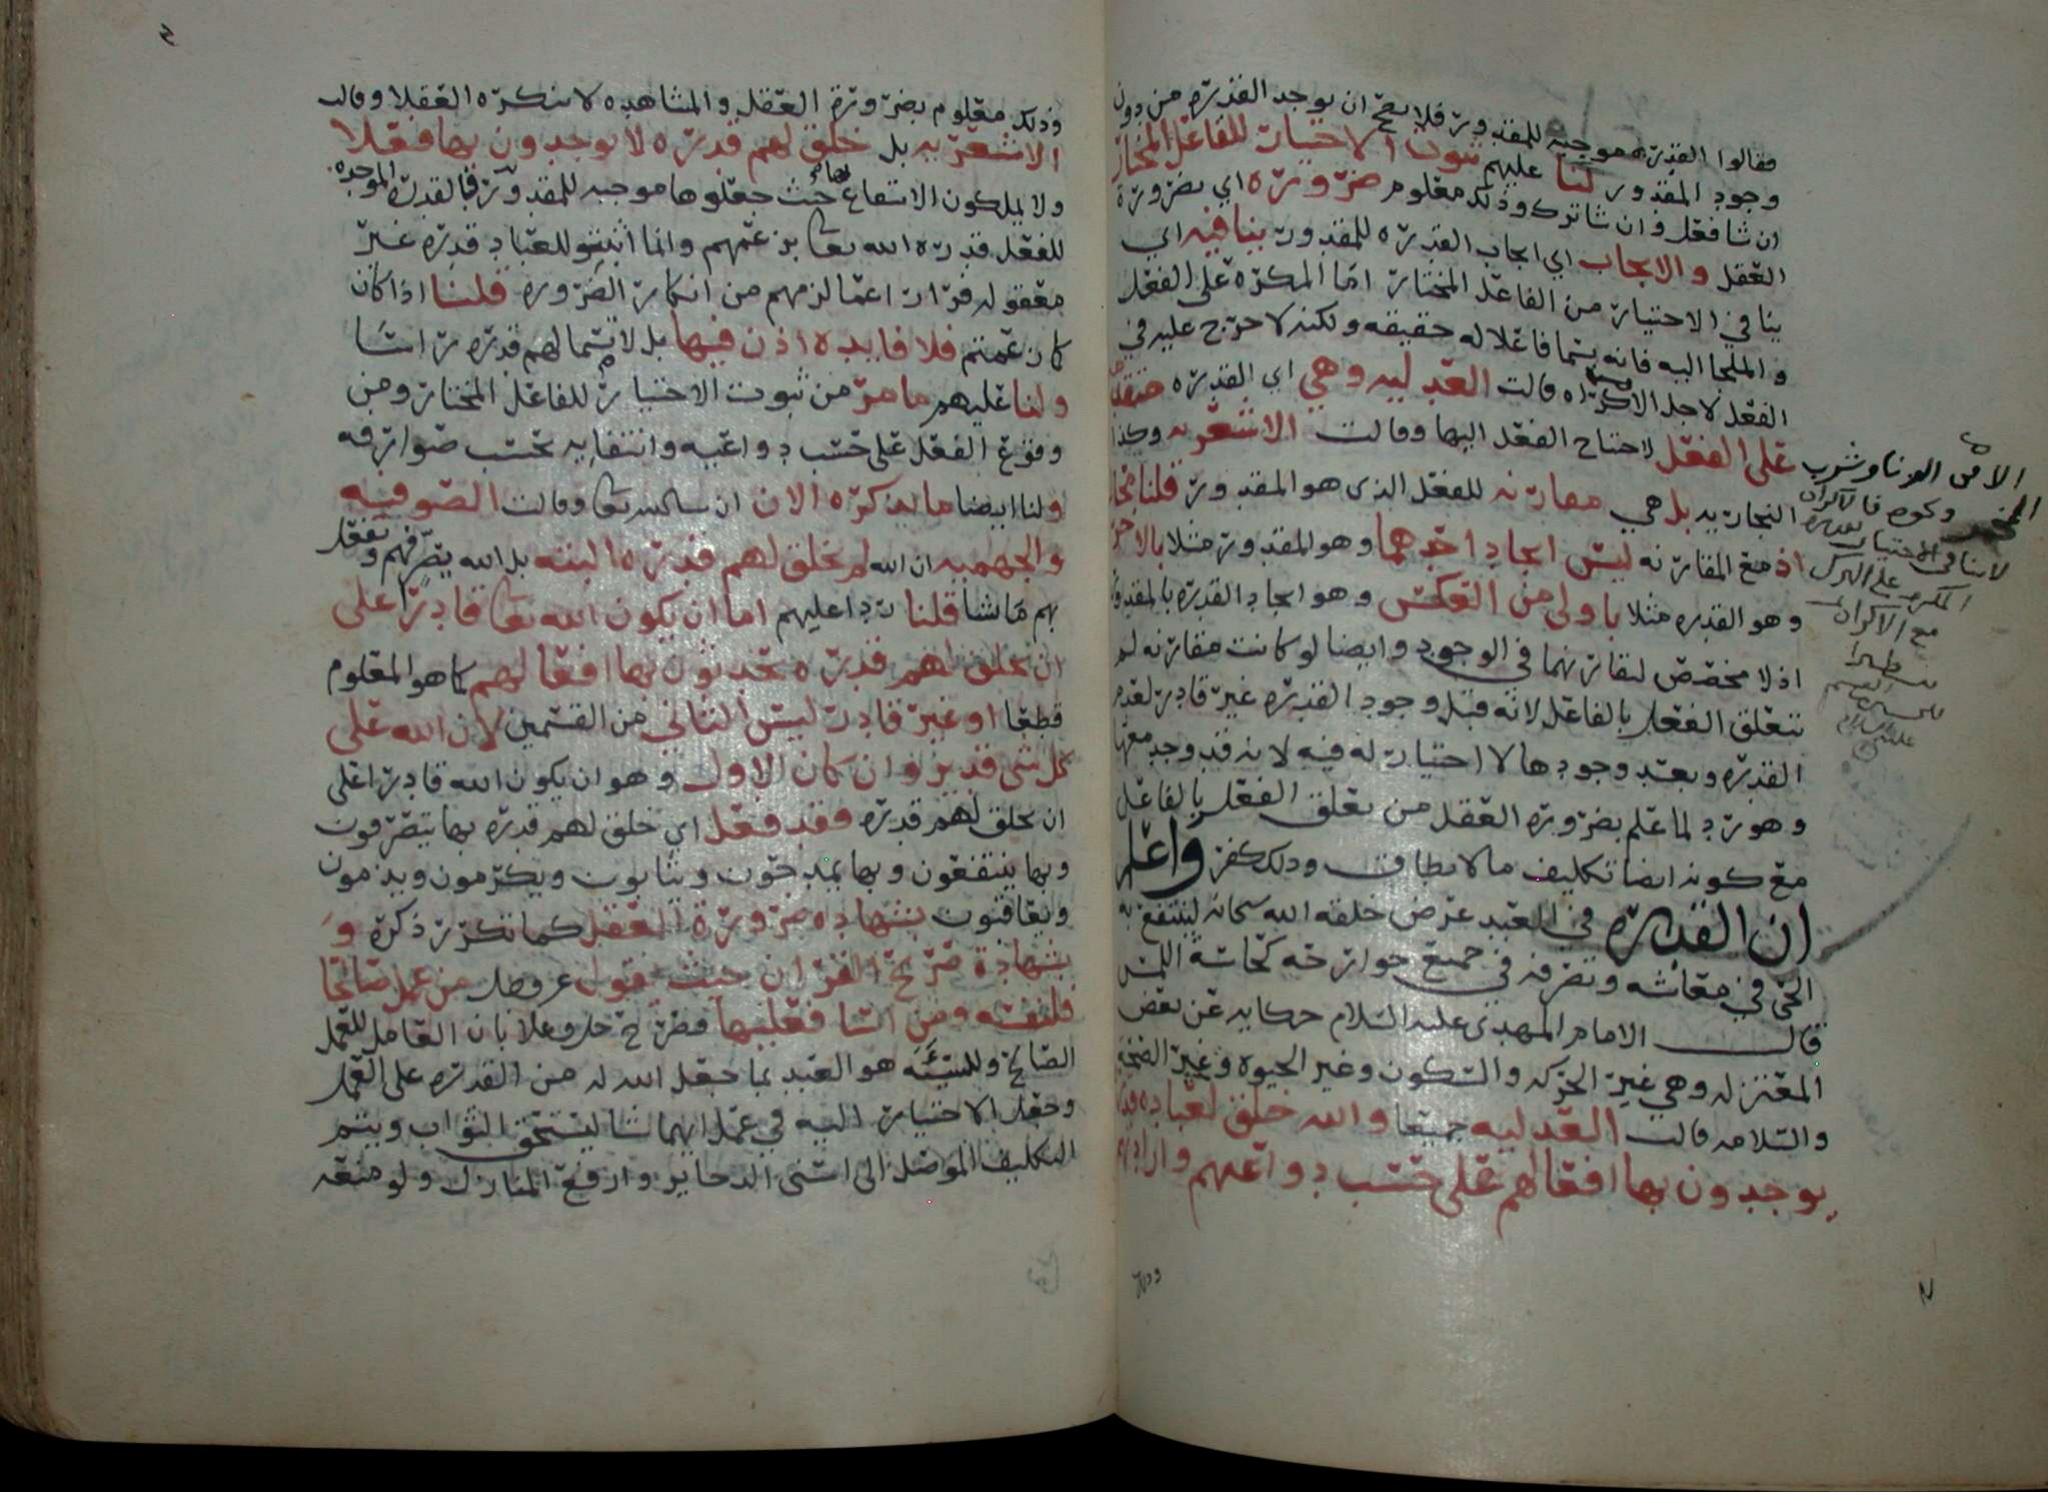 فقالوا القدره موجبه للمقدور فلا يصح ان يوجد القدره من دون
وجود المقدور لنا عليهم ثبوت الاختيار للفاعل المختار
ان شا فعل وان شا ترك وذلك معلوم ضرورة اي بضرورة
العقل والايجاب اي ايجاب القدره للمقدور ينافيه اي
ينافي الاختيار من الفاعل المختار اما المكره على الفعل
و الملجا اليه فانه يسما فاعلا له حقيقه ولكنه لا حرج عليه في
الفعل لاجل الاكراه قالت العدليه وهي اي القدره متقدمه
على الفعل لاحتياج الفعل اليها وقالت الاشعريه وكذا
النجاريه بل هي مقارنه للفعل الذي هو المقدور قلنا محال
اذ مع المقارنه ليس ايجاد احدهما وهو المقدور مثلا بالاخر
وهو القدره مثلا باولى من العكس وهو ايجاد القدره بالمقدور
اذ لا مخصص لتقارنهما في الوجود وايضا لو كانت مقارنه لم
يتعلق الفعل بالفاعل لانه قبل وجود القدره غير قادر لعدم
القدره وبعد وجودها لا اختيار له فيه لانه قد وجد معها
وهو رد لما علم بضرورة العقل من تعلق الفعل بالفاعل
مع كونه ايضا تكليف ما لا يطاق وذلك كفر واعلم
ان القدره في العبد عرض خلقه الله سبحانه لينتفع به
الحي في معائشه وتصرفه في جميع جوارحه كحاسة اللمس
قال الامام المهدي عليه السلام حكايه عن بعض
المعتزله وهي غير الحركه والسكون وغير الحيوه وغير الصحة
والسلامه قالت العدليه جميعا والله خلق لعباده قدره
يوجدون بها افعالهم على حسب دواعيهم وارادتهم
الا في الزنا وشرب
الخمر ونحوه فالاكراه
لا ينافي الاختيار
مع الاكراه
عليه السلام
وذلك
وذلك معلوم بضرورة العقل والمشاهده لا ينكره العقلا وقالت
الاشعريه بل خلق لهم قدره لا يوجدون بها فعلا
ولا يملكون الانتفاع بها حيث جعلوها موجبه للمقدور فالقدره الموجده
للفعل قدره الله تعالى بزعمهم وانما اثبتوا للعباد قدره غير
معقوله فرارا عما لزمهم من انكار الضروره قلنا اذا كان
كما زعمتم فلا فايده اذن فيها بل لا يسما لهم قدره راسا
ولنا عليهم ما مر من ثبوت الاختيار للفاعل المختار ومن
وقوع الفعل على حسب دواعيه وانتفايه بحسب صوارفه
ولنا ايضا ما نذكره الان ان شا الله تعالى وقالت الصوفيه
والجهميه ان الله لم يخلق لهم قدره البته بل الله يصرفهم ويفعل
بهم ما شا قلنا ردا عليهم اما ان يكون الله تعالى قادرا على
ان يخلق لهم قدره يحدثون بها افعالهم كما هو المعلوم
قطعا او غير قادر ليس الثاني من القسمين لان الله على
كل شي قدير وان كان الاول وهو ان يكون الله قادرا على
ان يخلق لهم قدره فقد فعل اي خلق لهم قدره بها يتصرفون
وبها ينتفعون وبها يمدحون ويثابون ويكرمون ويذمون
ويعاقبون بشهادة ضرورة العقل كما تكرر ذكره و
بشهادة صريح القران حيث يقول عز وجل من عمل صالحا
فلنفسه ومن اسا فعليها فصرح جل وعلا بان العامل للعمل
الصالح وللسيئه هو العبد بما جعل الله له من القدره على العمل
وجعل الاختيار اليه في عمل ايهما شا ليستحق الثواب ويتم
التكليف الموصل الى اسنى الذخاير وارفع المنازل ولو منعه